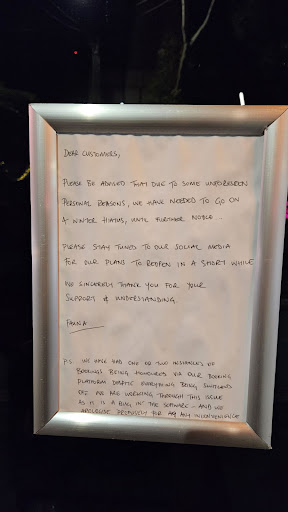 DEAR CUSTOMERS,
PLEASE BE ADVISED THAT DUE TO SOME UNFORESEEN
PERSONAL REASONS, WE HAVE NEEDED TO GO ON
A WINTER HIATUS, UNTIL FURTHER NOTICE...
PLEASE STAY TUNED TO OUR SOCIAL MEDIA
FOR OUR PLANS TO REOPEN IN A SHORT WHILE
WE SINCERELY THANK YOU FOR YOUR
SUPPORT & UNDERSTANDING.
FAUNA
P.S WE HAVE HAD ONE OR TWO INSTANCES OF
BOOKINGS BEING HONOURED VIA OUR BOOKING
PLATFORM DESPITE EVERYTHING BEING SWITCHED
OFF. WE ARE WORKING THROUGH THIS ISSUE
AS IT IS A BUG IN THE SOFTWARE - AND WE
APOLOGISE FOR ANY INCONVENIENCE